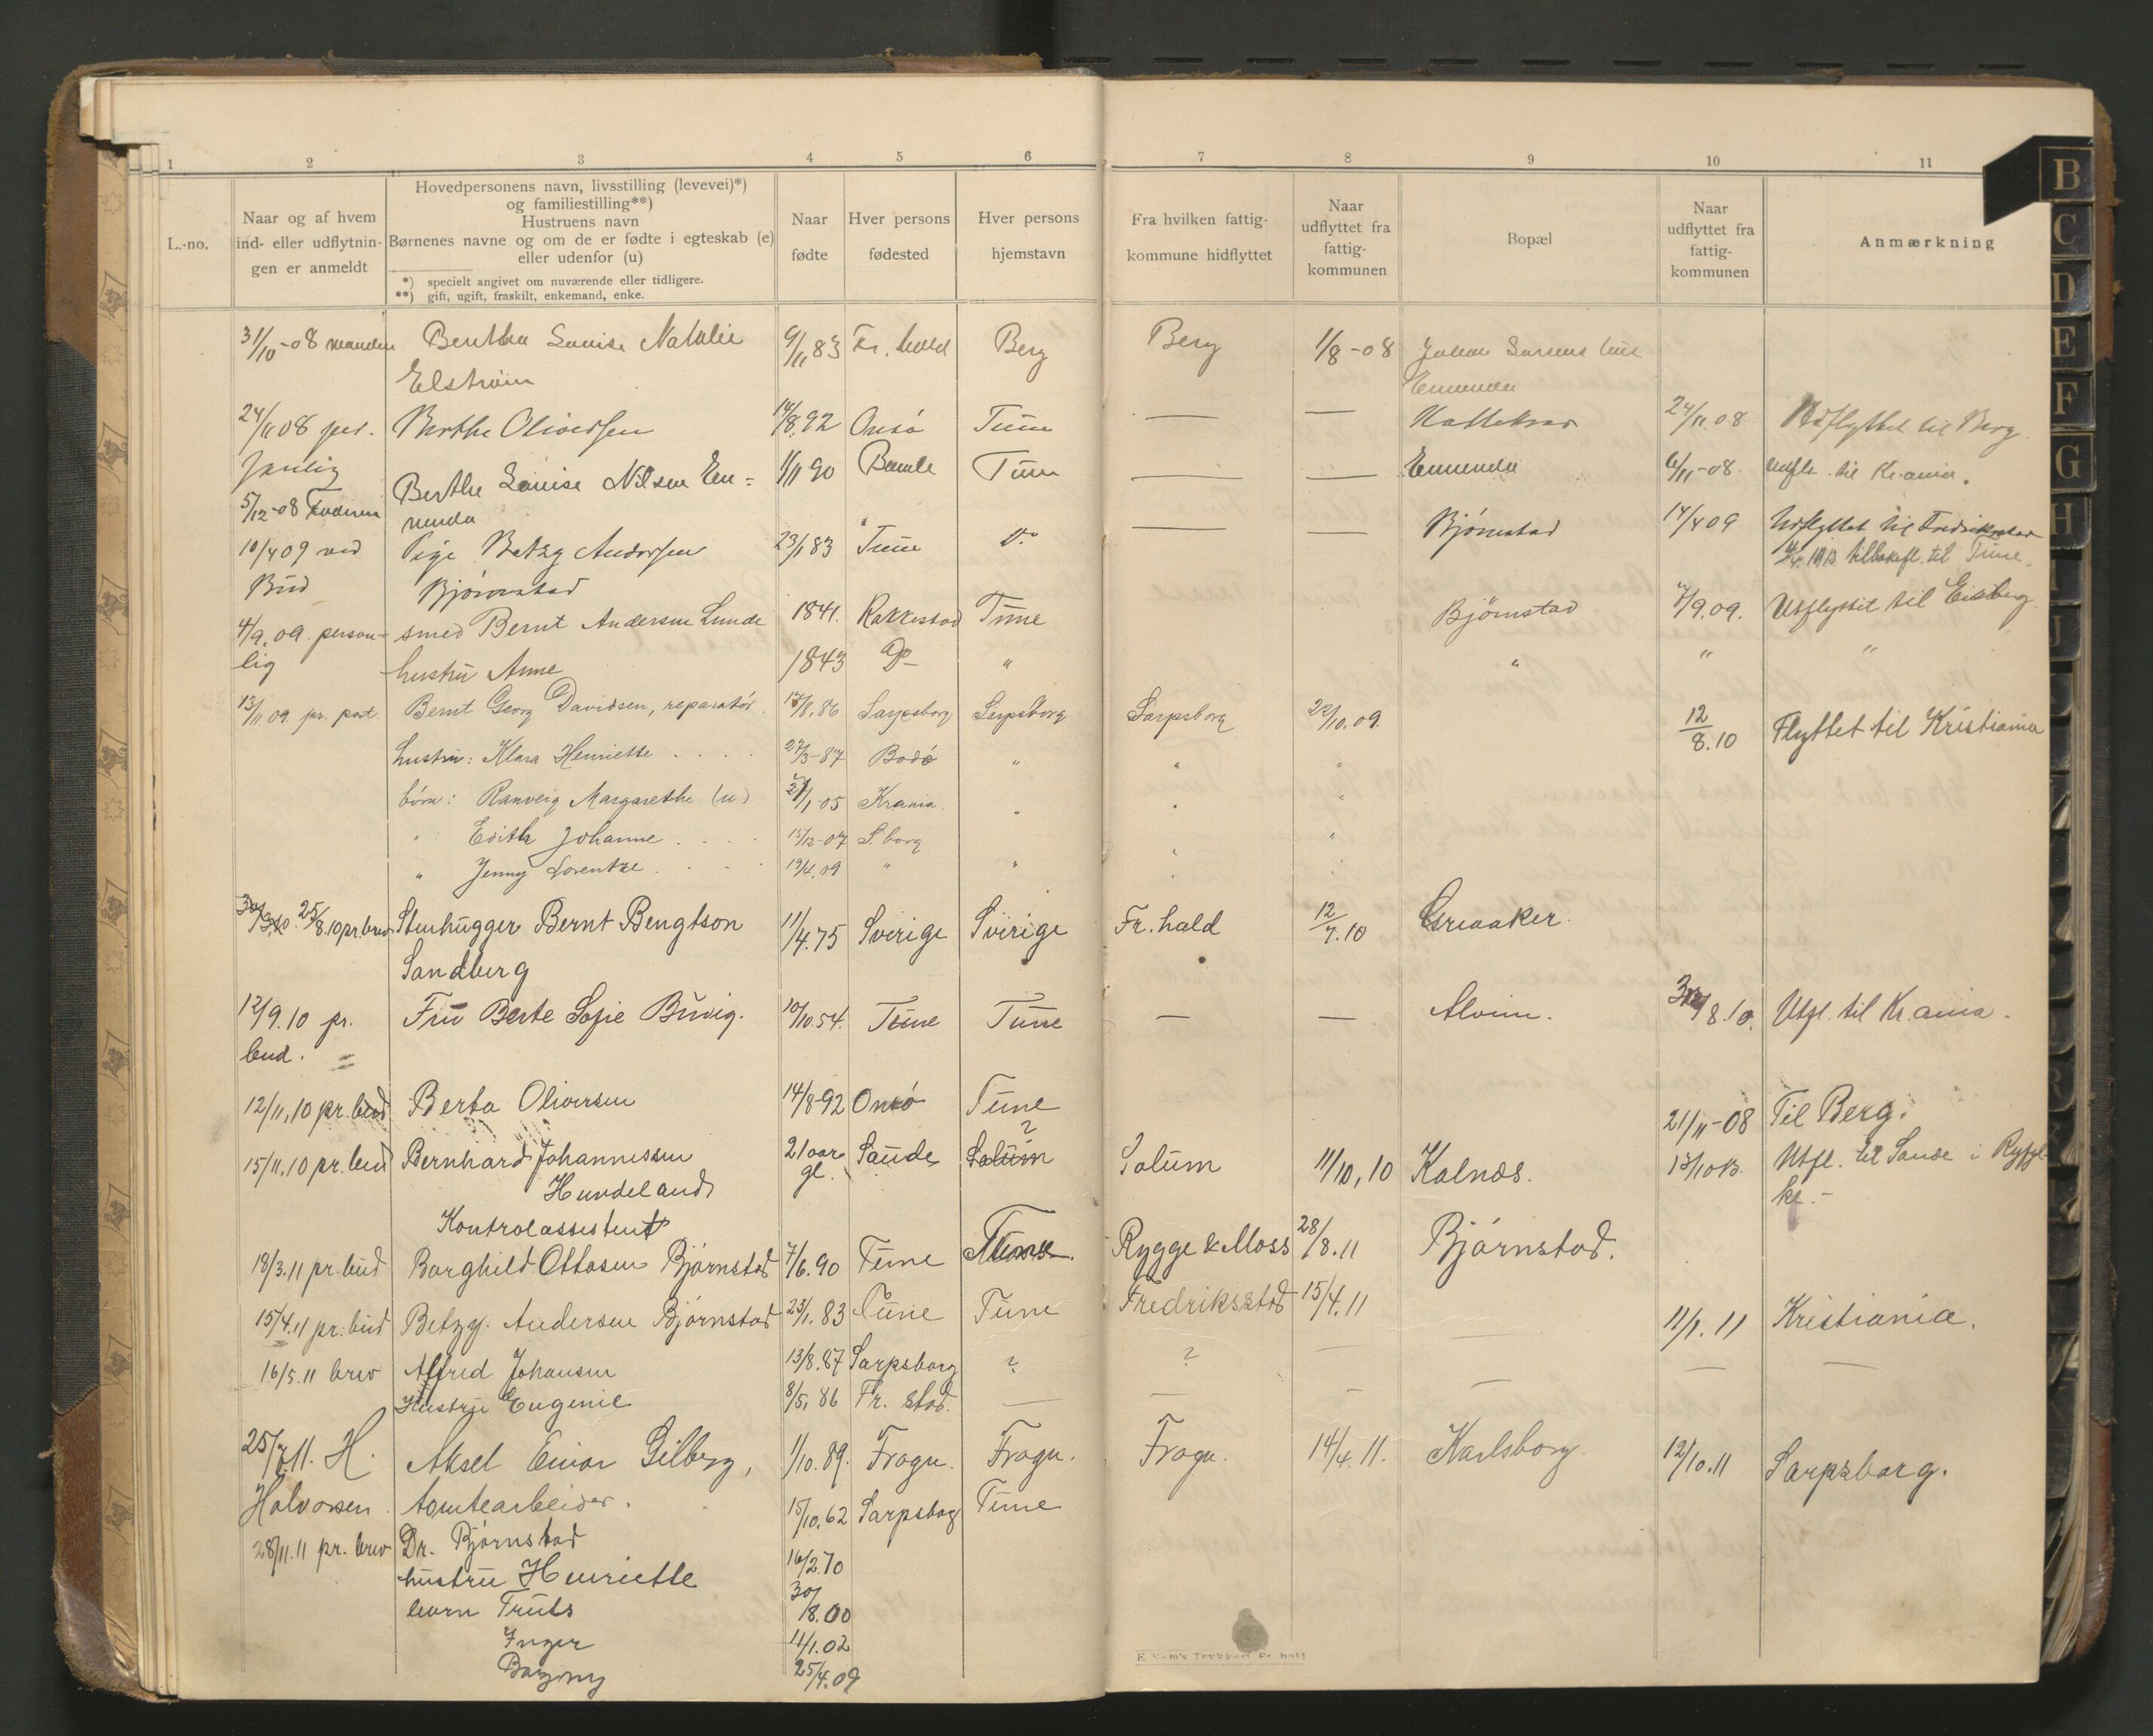 1 2 3 4 5 6 7 8 9 10 11
L.-no.
Naar og af hvem
ind- eller udflytnin-
gen er anmeldt
Hovedpersonens navn, livsstilling (levevei)*)
og familiestilling**)
Hustruens navn
Børnenes navne og om de er fødte i egteskab (e)
eller udenfor (u)
*) specielt angivet om nuværende eller tidligere.
**) gift, ugift, fraskilt, enkemand, enke.
Naar
fødte
Hver persons
fødested
Hver persons
hjemstavn
Fra hvilken fattig-
kommune hidflyttet
Naar
udflyttet fra
fattig-
kommunen
Bopæl
Naar
udflyttet fra
fattig-
kommunen
Anmærkning
31/10-08 manden Bertha Lovise Natalie 9/11 83 Fr. hald Berg Berg 1/8-08 Johan Larsens hus
Elström Enmunda
24/11 08 per. Berthe Oliversen 14/8.92 Onsö Tune — — Kattekras 24/11.08 Udflyttet til Berg
sonlig Berthe Lovise Nilsen En= 1/11 90 Bamle Tune — — Enmunda 6/11-08. Udfl. til Kr.ania.
5/12-08 Faderen munda
10/4 09 ved Pige Betzy Andersen 23/1 83 Tune Do — — Bjørnstad 14/4 09 Udflyttet til Fredriksstad
Bud Bjørnstad 1913 tilbakefl. til Tune.
4/9.09. person= smed Bernt Andersen Lunde 1841. Rakkestad Tune Bjørnstad 7/9.09. Utflyttet til Eidsberg
lig hustru Anne 1843 Do " " " "
13/11.09. pr. post Bernt Georg Davidsen, reparatör 17/8.86 Sarpsborg Sarpsborg Sarpsborg 22/10.09. 12/8.10 Flyttet til Kristiania
hustru: Klara Henriette . . . . 27/3-87 Bodö " " "
börn: Ranveig Margarethe (u) 21/1.05 Krania " " "
" Edith Johanne . . . . 15/12-07 S.borg "
" Jenny Lorentze . . . . 19/4.09 " " " "
25/8.10 pr. brev Stenhugger Bernt Bengtson 11/4.75 Sverige Sverige Fr. hald 12/7.10 Greaaker.
Sandberg
12/9.10 pr. Fru Berte Sofie Buvig. 10/10.54. Tune Tune — — Alvim. 8.10. Utfl. til Kr.ania.
bud.
12/11.10 pr. bud Berta Oliversen 14/8-92 Onsö Tune 21/11-08 Til Berg.
15/11.10 pr. bud Bernhard Johannessen 21 aar Saude ? Solum Solum 11/10,10 Kalnæs. 13/10 13. Utfl. til Sande i Ryfyl-
Hundeland gl. ke.-
Kontrolassistent
18/3.11 pr. bud Borghild Ottosen Bjørnstad 7/6.90 Tune Tune Rygge & Moss 28/8.11 Bjørnstad.
15/4.11 pr. bud Betzy Andersen Bjørnstad 23/1.83 Tune Tune Fredriksstad 15/4.11 — 11/1.11 Kristiania.
16/5.11 brev Alfred Johansen 13/8.87 Sarpsborg ? ? — — —
Hustru Eugenie 8/5,86 Fr. stad. — — — —
25/7.11. H. Aksel Einar Gilberg, 1/10.89. Frogn. Frogn. Frogn. 14/4.11. Karlsborg. 12/10.11 Sarpsborg.
Halvorsen. tomtearbeider. 15/10.62 Sarpsborg Tune
28/11.11 pr. brev Dr. Bjørnstad
hustru Henriette 16/2.70
barn Truls 30/8.00
Inger 11/1.02
25/4.09
B
C
D
E
F
G
H
I
J